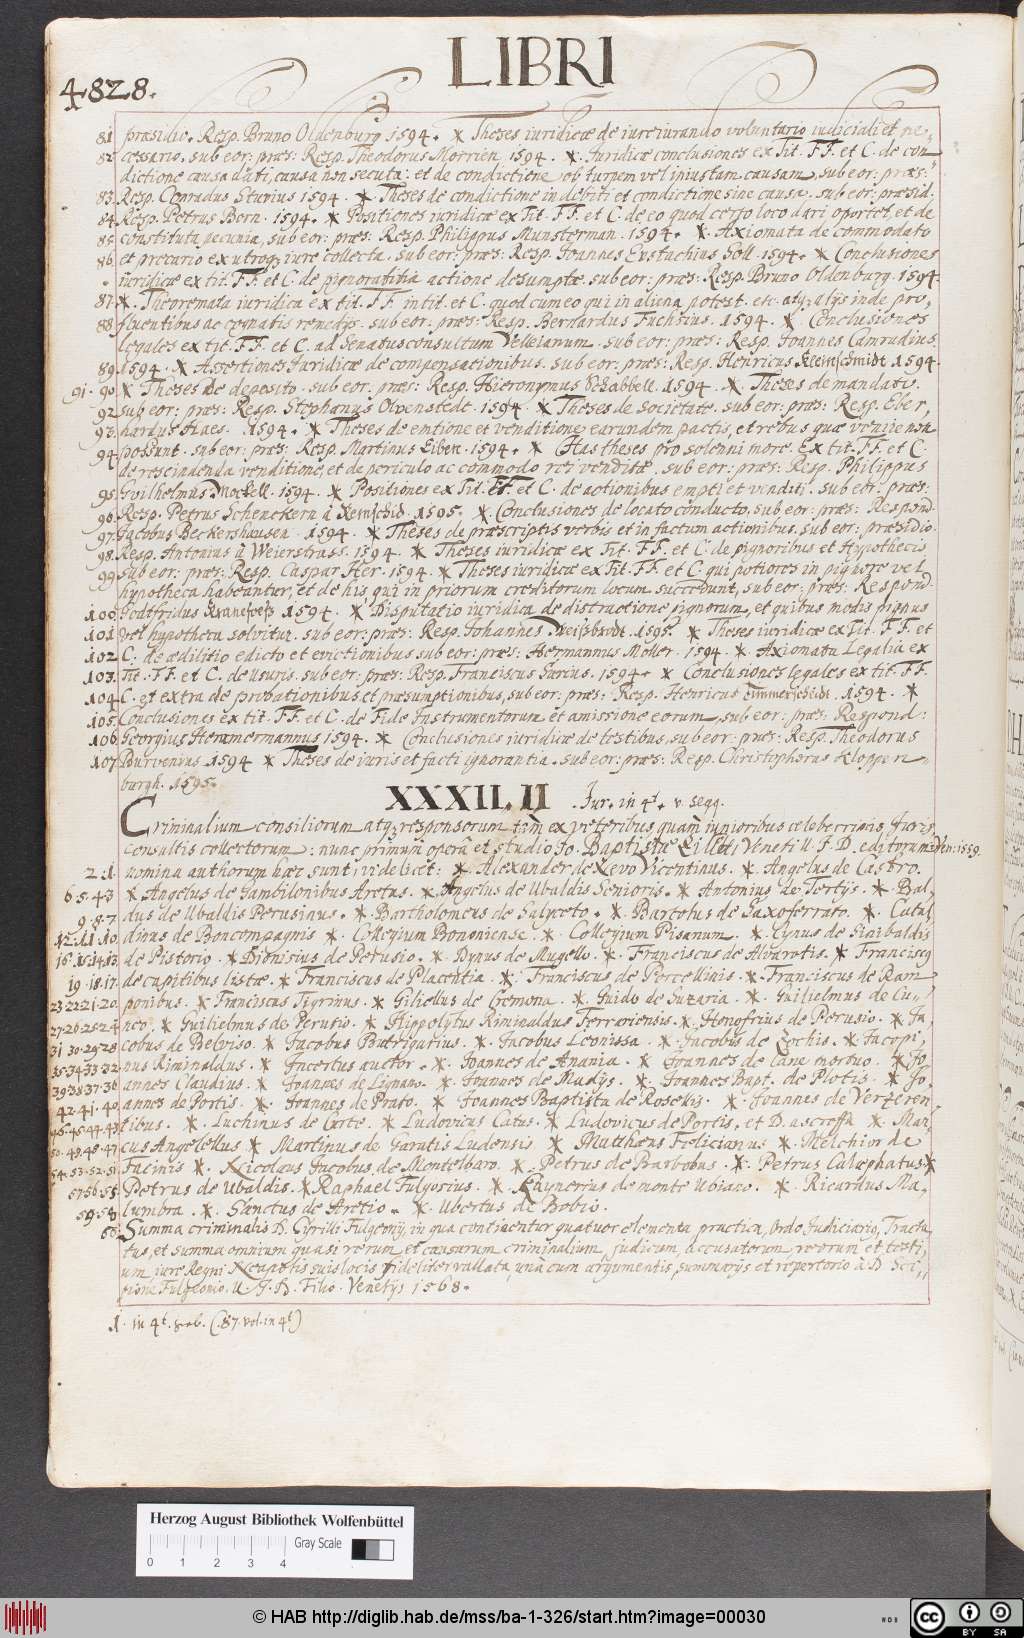 LIBRI
4828.
81 præsidio. Resp. Bruno Oldenburg 1594. * Theses iuridicæ de iureiurando voluntario iudiciali et ne-
82 cessario, sub eor: præs: Resp. Theodorus Morrien, 1594. * Juridicæ conclusiones ex Tit. FF. et C. de con
dictione causa dati, causa non secuta: et de condictione ob turpem vel iniustam causam, sub eor: præs:
83. Resp. Conradus Sturius 1594. * Theses de condictione indebiti et condictione sine causa. sub eor: præsid.
84. Resp. Petrus Born. 1594. * Positiones iuridicæ ex Tit. FF. et C. de eo quod certo loco dari oportet, et de
85. constituta pecunia, sub eor: præs: Resp. Philippus Munsterman. 1594. * Axiomata de commodato
86. et precario ex utroq; iure collecta. sub eor: præs: Resp. Joannes Eustachius Goll. 1594. * Conclusiones
iuridicæ ex tit. FF. et C. de pignoratitia actione desumptæ. sub eor: præs: Resp. Bruno Oldenburg. 1594.
87. * Theoremata iuridica ex tit. FF. in tit. et C. quod cum eo qui in aliena potest. etc. atq; alijs inde pro,
88. fluentibus ac cognatis remedijs. sub eor: præs: Resp. Bernardus Fuchsius. 1594. * Conclusiones
legales ex tit. FF. et C. ad Senatusconsultum Velleianum. sub eor: præs: Resp. Joannes Camradius.
89. 1594. * Assertiones Juridicæ de compensationibus. sub eor: præs: Resp. Henricus Kleinschmidt 1594.
91. 90. * Theses de deposito. sub eor: præs: Resp. Hieronymus Schabbell. 1594. * Theses de mandato.
92 sub eor: præs: Resp. Stephanus Olvenstedt. 1594 * Theses de societate. sub eor: præs: Resp. Eber,
93. hardus Haes. 1594. * Theses de emtione et venditione earundem pactis, et rebus quæ venire non
94 possunt. sub eor: præs: Resp. Martinus Eiben. 1594. * Has theses pro solenni more. Ex tit. FF. et C.
de rescindenda venditione, et de periculo ac commodo rei venditæ. sub eor: præs: Resp. Philippus
95. Guilhelmus Mockell. 1594. * Positiones ex Tit. FF. et C. de actionibus empti et venditi. sub eor: præs:
96. Resp. Petrus Schenckern à 1595. * Conclusiones de locato conducto. sub eor: præs: Respond.
97. Jacobus Beckershausen. 1594. * Theses de præscriptis verbis et in factum actionibus. sub eor: præsidio
98. Resp. Antonius à Weierstrass. 1594. * Theses iuridicæ ex Tit. FF. et C. de pignoribus et Hypothecis
99 sub eor: præs: Resp. Caspar Her. 1594. * Theses iuridicæ ex Tit. FF. et C. qui potiores in pignore vel
hypotheca habeantur, et de his qui in priorum creditorum locum succedunt, sub eor: præs: Respond.
100 Godtfridus 1594. * Disputatio iuridica de distractione pignorum, et quibus modis pignus
101 vel hypotheca solvitur. sub eor: præs: Resp. Johannes 1595. * Theses iuridicæ ex Tit. FF. et
102 C. de ædilitio edicto et evictionibus sub eor: præs: Hermannus Moller. 1594. * Axiomata Legalia ex
103. Tit. FF. et C. de usuris. sub eor: præs: Resp. Franciscus 1594. * Conclusiones legales ex tit. FF.
104 C. et extra de probationibus et præsumptionibus, sub eor: præs: Resp. Henricus Zimmerscheidt. 1594. *
105. Conclusiones ex tit. FF. et C. de Fide Instrumentorum et amissione eorum, sub eor: præs: Respond:
106 Georgius Hemmermannus 1594. * Conclusiones iuridicæ de testibus, sub eor: præs: Resp. Theodorus
107 Burvenius. 1594 * Theses de iuris et facti ignorantia. sub eor: præs: Resp. Christophorus Kloppen-
burgh. 1595.
XXXII. II Jur. in 4t. v. seqq.
Criminalium consiliorum atq; responsorum tàm ex veteribus quàm iunioribus celeberrimis Juris
consultis collectorum: nunc primùm operâ et studio Jo. Baptistæ Zilleti Veneti U. J. D. editorum Ven: 1559.
2. 1. nomina authorum hæc sunt: videlicet: * Alexander de Nevo Vicentinus. * Angelus de Castro.
6 5. 4 3 * Angelus de Gambilonibus Aretus. * Angelus de Ubaldis Senioris. * Antonius de Tertijs. * Bal-
9. 8. 7 dus de Ubaldis Perusinus. * Bartholomeus de Salyceto. * Bartolus de Saxoferrato. * Catal-
12. 11. 10. dinus de Boncompagnis * Collegium Bononiense. * Collegium Pisanum. * Cynus de Sinibaldis
16. 15. 14. 13 de Pistorio. * Dionisius de Perusio. * Dynus de Mugello. * Franciscus de Alvarotis. * Franciscq
19. 18. 17. de capitibus listæ. * Franciscus de Placentia * Franciscus de Porcellinis * Franciscus de Ram
23. 22. 21. 20. ponibus. * Franciscus Tigrinus. * Giliellus de Cremona. * Guido de Suzaria. * Guilielmus de Cu-
27. 26. 25. 24 neo. * Guilielmus de Perusio. * Hippolytus Riminaldus Ferrariensis. * Honofrius de Perusio. * Ja,
31 30. 29. 28 cobus de Belviso. * Jacobus Butrigarius. * Jacobus Leonissa. * Jacobus de Zochis. * Jacopi,
35. 34. 33. 32. nus Riminaldus. * Incertus auctor. * Joannes de Anania. * Joannes de Cane mortuo. * Jo
39. 38. 37. 36 annes Claudius. * Joannes de Lignano. * Joannes de Madijs. * Joannes Bapt. de Plotis. * Jo-
42. 41. 40 annes de Portis. * Joannes de Prato. * Joannes Baptista de Rosellis. * Joannes de Verzeren
46. 45. 44. 43 tibus. * Luchinus de Curte. * Ludovicus Catus. * Ludovicus de Portis, et D. a scroffa * Mar,
50. 49. 48. 47 cus Angelellus * Martinus de Garatis Ludensis * Matthæus Felicianus * Melchior de
54. 53. 52. 51 Facinis * Nicolaus Jacobus de Montelbaro. * Petrus de Barbobus. * Petrus Calephatus *
57. 56. 55 Petrus de Ubaldis. * Raphael Fulgosius. * Raynerius de monte Ubiano. * Ricardus Ma,
59. 58 lumbra. * Sanctus de Aretio. * Ubertus de Bobio.
60. Summa criminalis D. Cyrilli Fulgeonij, in qua continentur quatuor elementa practica, Ordo Judiciario, Tracta
tus, et summa omnium quasi rerum et causarum criminalium, judicum, accusatorum, reorum et testi,
um iure Regni Neapolis suis locis fideliter vallata, unà cum argumentis, summarijs et repertorio à D. Sci-
pione Fulgeonio. U. J. D. Filio. Venetijs 1568.
1. in 4t. (87. vol. in 4t)
Herzog August Bibliothek Wolfenbüttel
Gray Scale
0 1 2 3 4
© HAB http://diglib.hab.de/mss/ba-1-326/start.htm?image=00030
WDB
cc BY SA